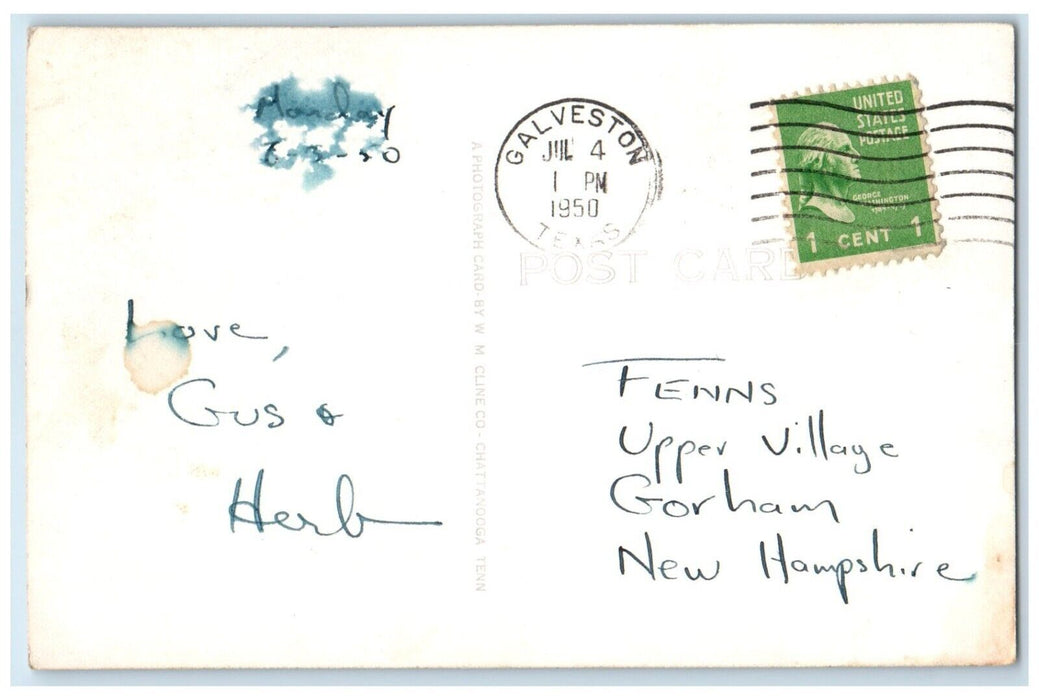 Monday
-3-50
Love,
Gus &
Herb
A PHOTOGRAPH CARD-BY W M CLINE CO - CHATTANOOGA TENN
GALVESTON
JUL 4
1 PM
1950
TEXAS
UNITED
STATES
POSTAGE
GEORGE
WASHINGTON
1 CENT 1
POST CARD
FENNS
Upper Village
Gorham
New Hampshire